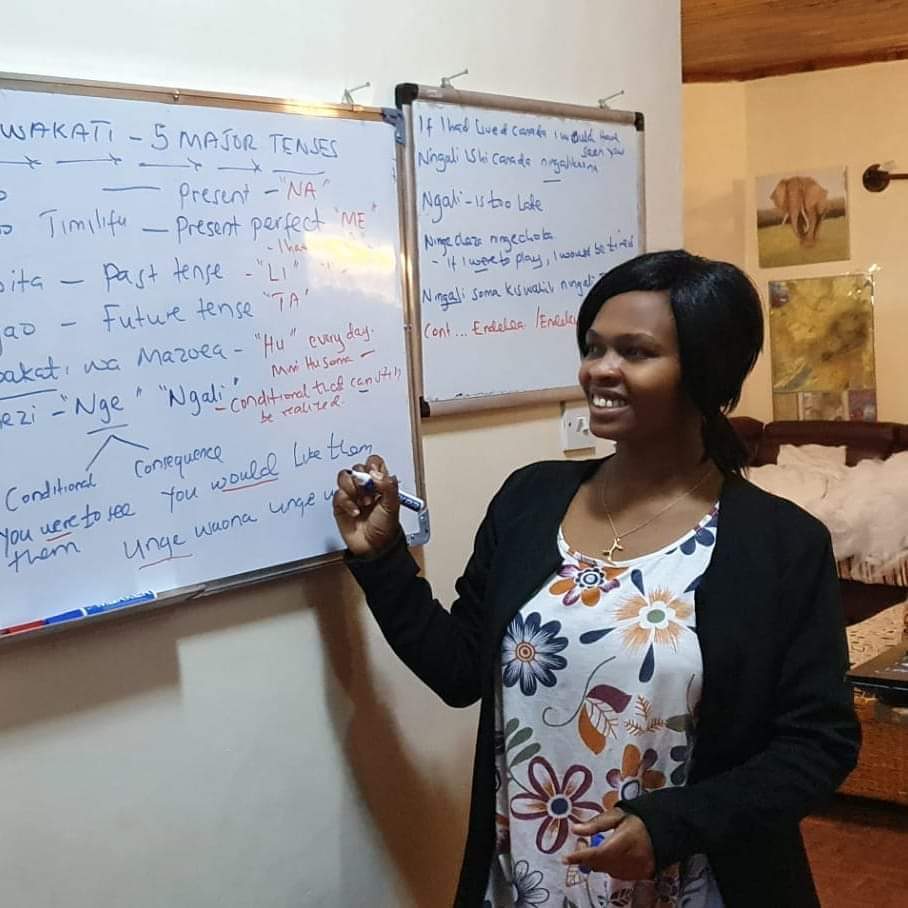 WAKATI - 5 MAJOR TENSES
Present - "NA"
Timilifu - Present perfect "ME"
- I ha
ita - Past tense - "LI"
gao - Future tense "TA"
akati wa Mazoea - "Hu" every day.
Mimi Husoma -
ezi - "Nge" "Ngali" - Conditional that can
be realized
Conditional Consequence
You were to see You would like them
them Unge waona unge
If I had lived Canada I would have
seen you
Ningali ishi Canada
Ngali - is too late
Ninge cheza ninge choka
- If I were to play, I would be tired
Ningali soma Kiswahili ningali
Cont ... Endelea /